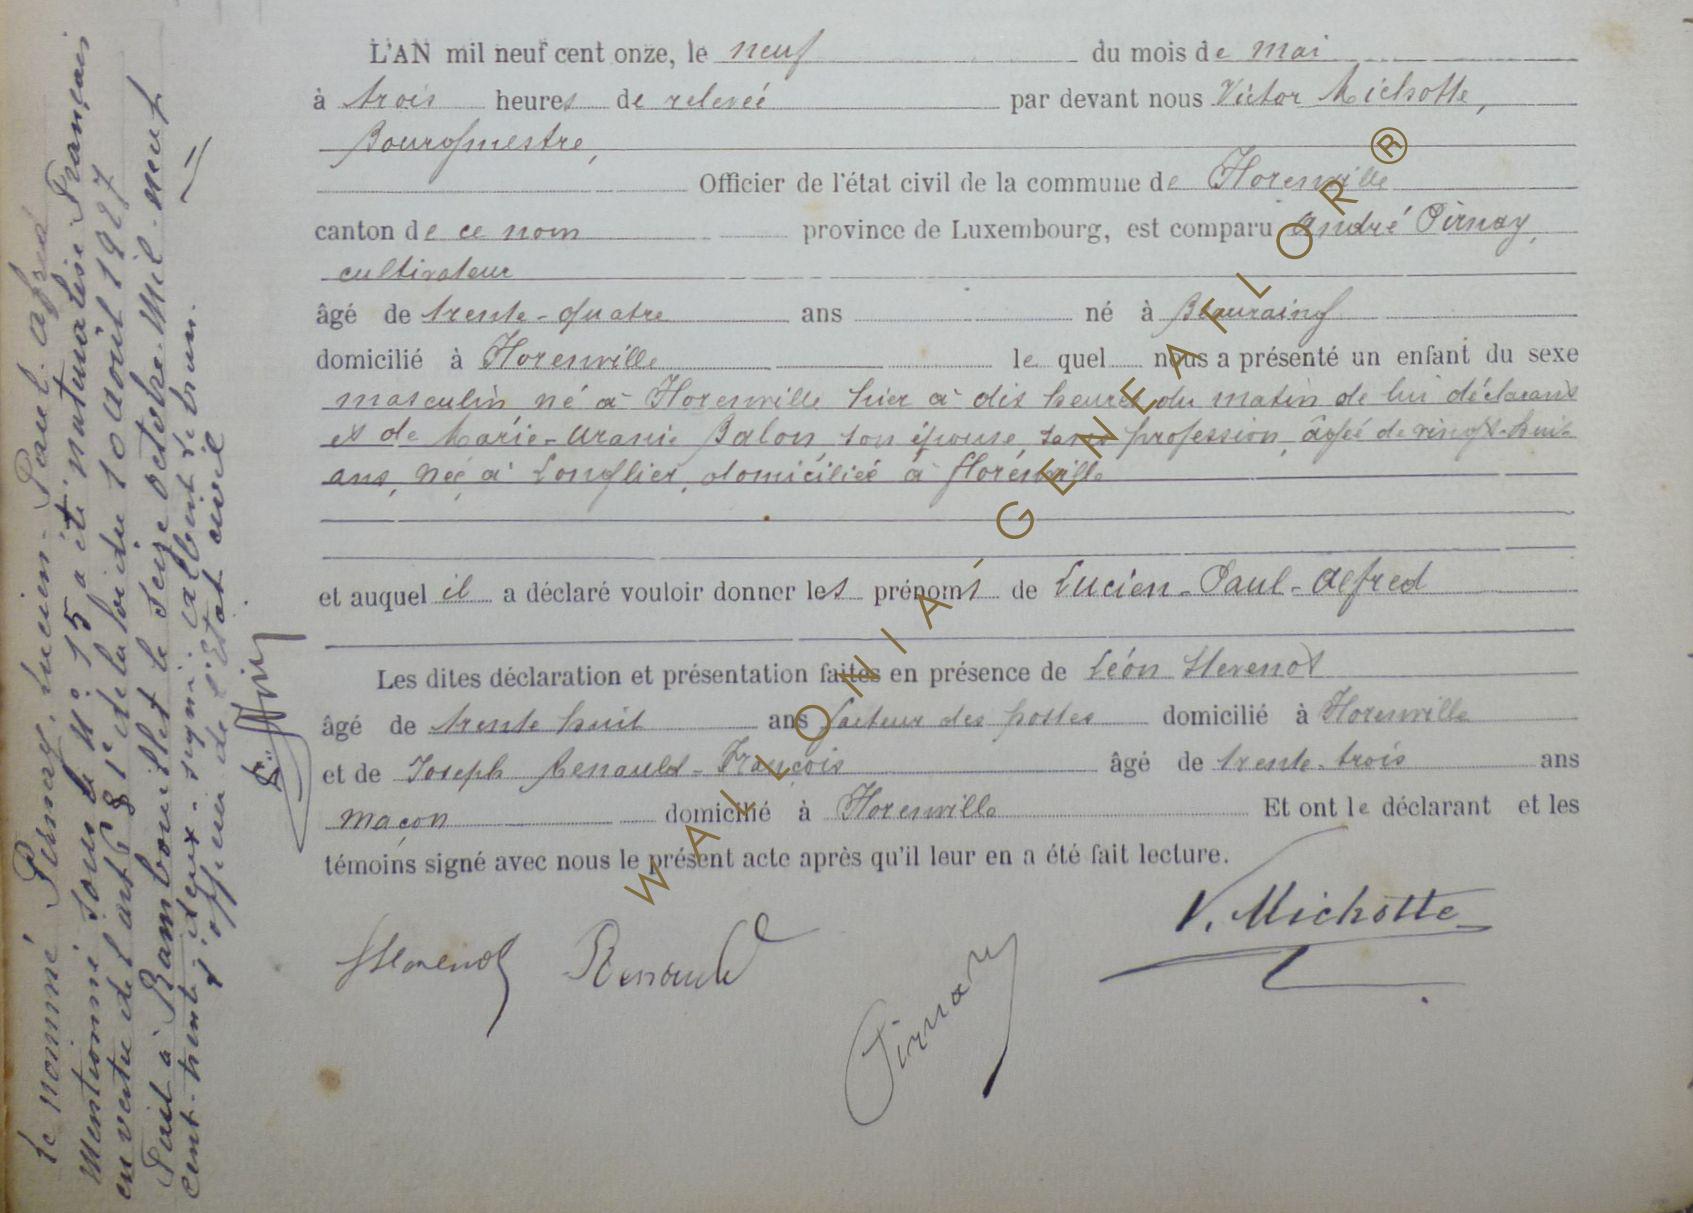 L'AN mil neuf cent onze, le neuf du mois de mai
à trois heures de relevée par devant nous Victor Michotte,
Bourgmestre,
Officier de l'état civil de la commune de Florenville
canton de ce nom province de Luxembourg, est comparu André Pirnay,
cultivateur
âgé de trente-quatre ans né à Beauraing
domicilié à Florenville le quel nous a présenté un enfant du sexe
masculin né à Florenville hier à dix heures du matin de lui déclarant
et de Marie-Uranie Balon, son épouse, sans profession, âgée de vingt-huit
ans, née à Longlier, domiciliée à Florenville
et auquel il a déclaré vouloir donner les prénoms de Lucien-Paul-Alfred
Les dites déclaration et présentation faites en présence de Léon
âgé de trente huit ans facteur des postes domicilié à Florenville
et de Joseph Renauld-François âgé de trente-trois ans
maçon domicilié à Florenville Et ont le déclarant et les
témoins signé avec nous le présent acte après qu'il leur en a été fait lecture.
V. Michotte
Renauld
Pirnay
Le nommé Pirnay, Lucien-Paul-Alfred
mentionné sous le N° 15 a été naturalisé Français
en vertu de l'art 6 § 1 de la loi du 10 août 1927
Fait à Rambouillet le seize octobre mil-neuf
cent-trente deux. signé:
l'officier de l'Etat civil
WALLONIA-GENEAFLOR®